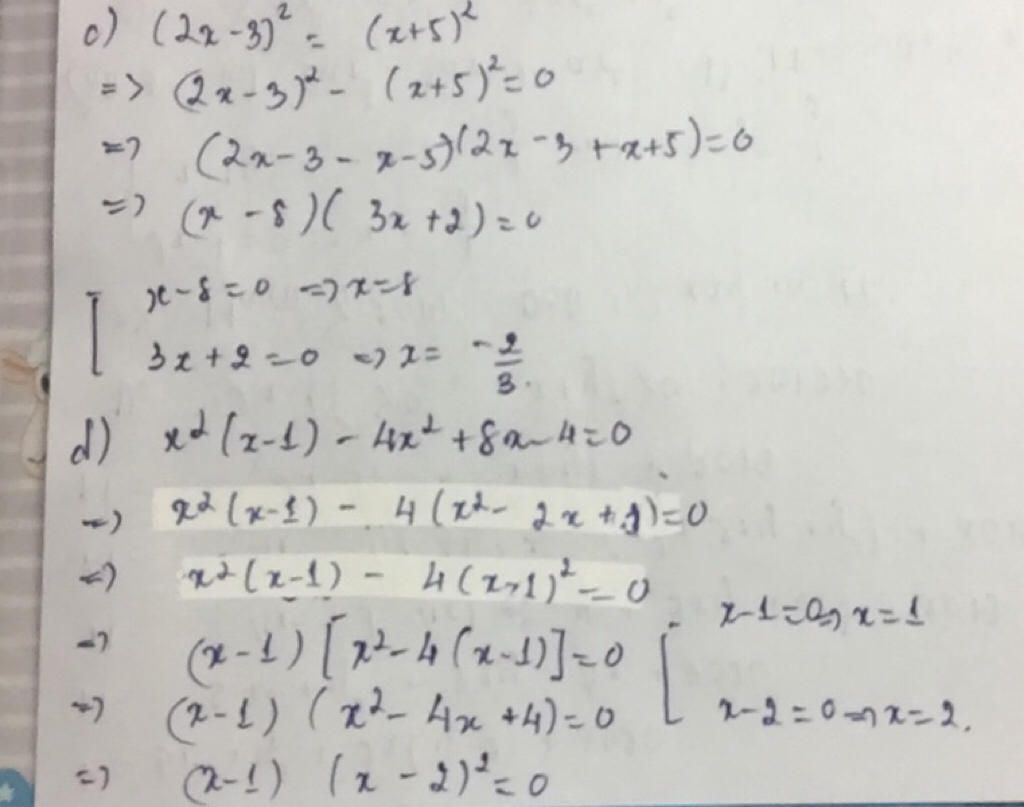 c) (2x-3)² = (x+5)²
=> (2x-3)² - (x+5)² = 0
=> (2x-3-x-5)(2x-3+x+5)=0
=> (x-8)(3x+2)=0
[ x-8=0 => x=8
3x+2=0 => x= -2/3.
d) x²(x-1) - 4x² + 8x - 4 = 0
=> x²(x-1) - 4(x² - 2x + 1)=0
=> x²(x-1) - 4(x-1)² = 0
=> (x-1)[x²-4(x-1)]=0
=> (x-1)(x²-4x+4)=0
=> (x-1)(x-2)²=0
[ x-1=0 => x=1
x-2=0 => x=2.